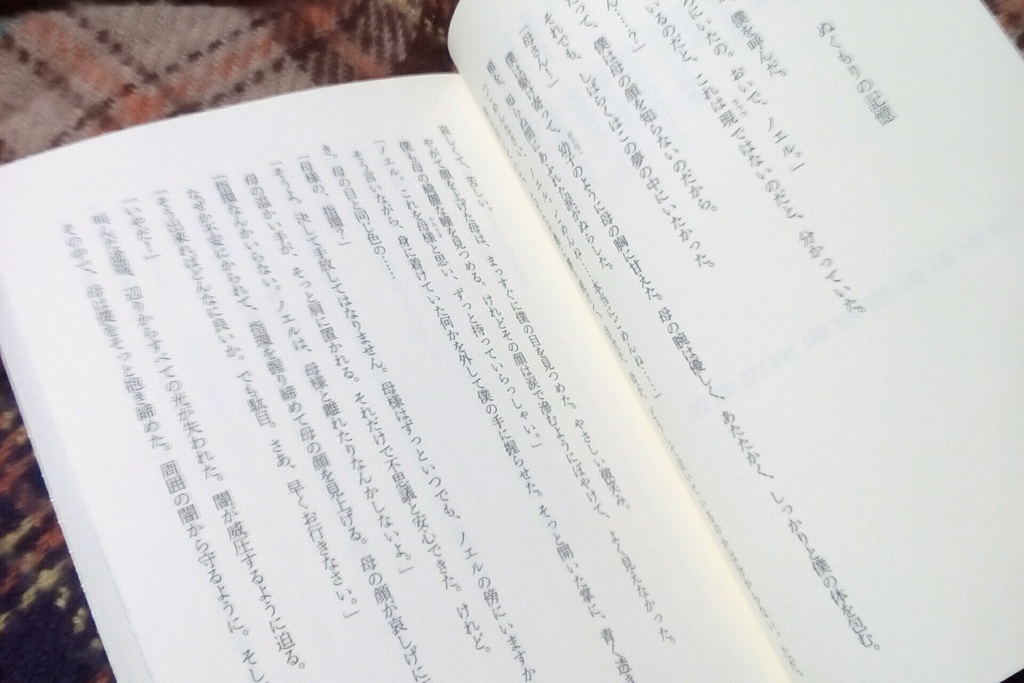 ぬくもりの記憶
僕を呼んだ。
にいたの。おいで、ノエル。」
いるのだと、これは現ではないのだと、分かっていた。
ん……?」
僕は母の顔を知らないのだから。
だって、
それでも、しばらくはこの夢の中にいたかった。
「母さん!」
僕は駆け寄って、幼子のように母の胸に甘えた。母の腕は優しく、あたたかく、しっかりと僕の体を包む。
知らぬ間にあふれた涙がぬらした。
ノエル。ごめんね……本当にごめんね……」
哀しくて、苦しい。
やがて顔を上げた母は、まっすぐに僕の目を見つめた。やさしい微笑み。
僕も母の綺麗な瞳を見つめる。けれどその顔は涙で滲むようにぼやけて、よく見えなかった。
「ノエル、これを母様と思い、ずっと持っていらっしゃい。」
そう言いながら、身に着けていた何かを外して僕の手に握らせた。そっと開いた掌に、青く透き
母の目と同じ色の……
「母様の、指環?」
「そうよ、決して手放してはなりません。母様はずっといつでも、ノエルの傍にいますか
母の温かい手が、そっと肩に置かれる。それだけで不思議と安心できた。けれど。
「指環なんかいらない。ノエルは、母様と離れたりなんかしないよ。」
なぜか不安にかられて、指環を握り締めて母の顔を見上げる。母の顔が哀しげに
「そう出来ればどんなに良いか。でも駄目。さあ、早くお行きなさい。」
「いやだ!」
叫んだ途端、辺りからすべての光が失われた。闇が威圧するように迫る。
その中で、母は僕をそっと抱き締めた。周囲の闇から守るように。そし